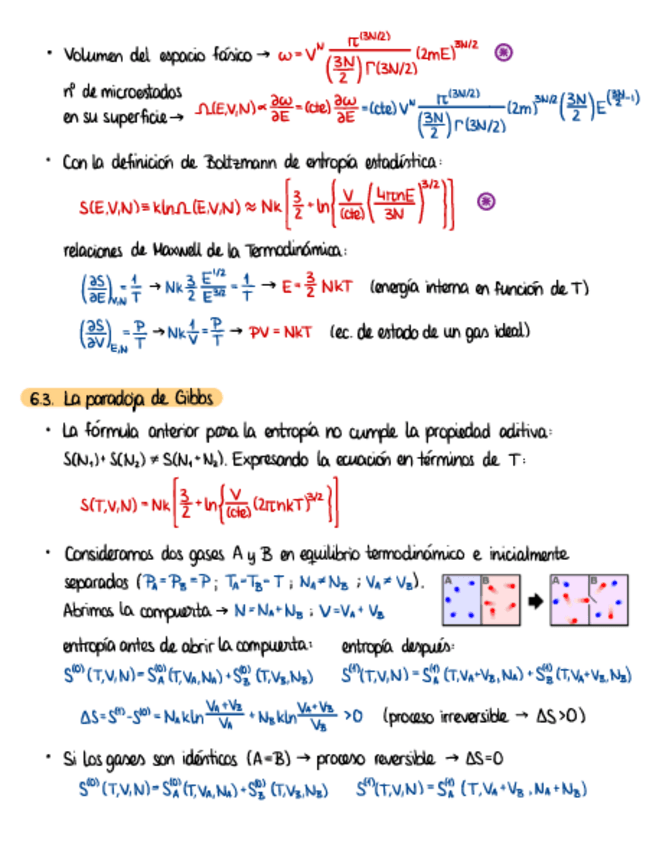 · Volumen del espacio fásico → ω = V^N π^(3N/2) / ((3N/2) Γ(3N/2)) (2mE)^3N/2 ⊛
nº de microestados
en su superficie → Ω(E,V,N) ∝ ∂ω/∂E = (cte) ∂ω/∂E = (cte) V^N π^(3N/2) / ((3N/2) Γ(3N/2)) (2m)^3N/2 (3N/2) E^(3N/2 -1)
· Con la definición de Boltzmann de entropía estadística:
S(E,V,N) ≡ k ln Ω (E,V,N) ≈ Nk [3/2 + ln{V/(cte) (4πmE/3N)^3/2}] ⊛
relaciones de Maxwell de la Termodinámica:
(∂S/∂E)V,N = 1/T → Nk 3/2 E^1/2/E^3/2 = 1/T → E = 3/2 NKT (energía interna en función de T)
(∂S/∂V)E,N = P/T → Nk 1/V = P/T → PV = NKT (ec. de estado de un gas ideal)
6.3. La paradoja de Gibbs
· La fórmula anterior para la entropía no cumple la propiedad aditiva:
S(N₁) + S(N₂) ≠ S(N₁ + N₂). Expresando la ecuación en términos de T:
S(T,V,N) = Nk [3/2 + ln{V/(cte) (2πmkT)^3/2}]
· Consideramos dos gases A y B en equilibrio termodinámico e inicialmente
separados (P_A = P_B = P ; T_A = T_B = T ; N_A ≠ N_B ; V_A ≠ V_B).
A B A B
Abrimos la compuerta → N = N_A + N_B ; V = V_A + V_B
entropía antes de abrir la compuerta: entropía después:
S^(0) (T,V,N) = S_A^(0) (T,V_A,N_A) + S_B^(0) (T,V_B,N_B) S^(f) (T,V,N) = S_A^(f) (T,V_A+V_B,N_A) + S_B^(f) (T,V_A+V_B,N_B)
ΔS = S^(f) - S^(0) = N_A k ln (V_A+V_B)/V_A + N_B k ln (V_A+V_B)/V_B > 0 (proceso irreversible → ΔS>0)
· Si los gases son idénticos (A=B) → proceso reversible → ΔS=0
S^(0) (T,V,N) = S_A^(0) (T,V_A,N_A) + S_B^(0) (T,V_B,N_B) S^(f) (T,V,N) = S_A^(f) (T,V_A+V_B,N_A+N_B)